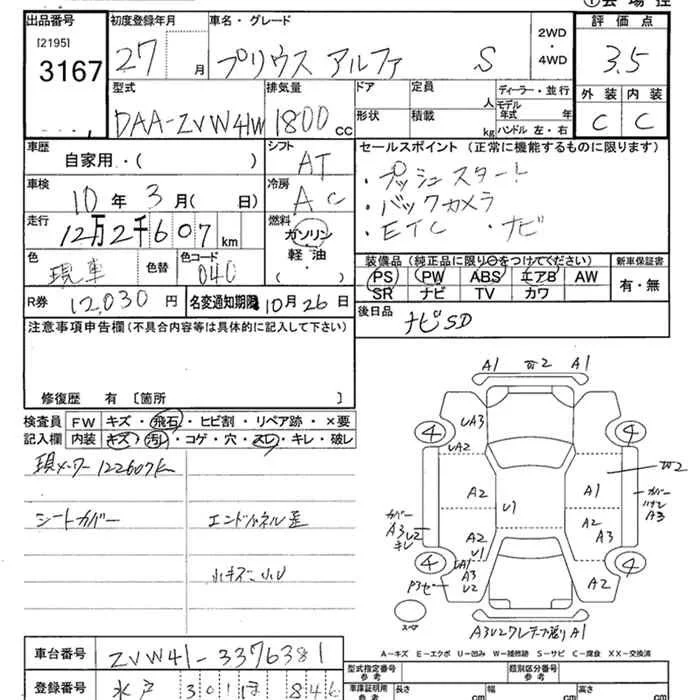 ①会場控
出品番号 初度登録年月 車名・グレード 2WD・4WD 評価点
[2195]
3167 27 月 プリウス アルファ S 3.5
型式 排気量 ドア 定員 人 ディーラー・並行 外装 内装
DAA-ZVW41W 1800 cc 形状 積載 kg モデル年式 年 ハンドル 左・右 C C
車歴 自家用・・( ) シフト AT セールスポイント (正常に機能するものに限ります)
・プッシュスタート
車検 10年3月( 日) 冷房 AC ・バックカメラ
走行 12万2千607km 燃料 ガソリン 軽油 ・( ) ・ETC ・ナビ
色 現車 色替 色コード 040 装備品 (純正品に限り○をつけてください) 新車保証書
PS PW ABS エアB AW 有・無
SR ナビ TV カワ
R券 12,030円 名変通知期限 10月26日 後日品 ナビSD
注意事項申告欄(不具合内容等は具体的に記入して下さい)
修復歴 有 [箇所 ]
検査員 FW キズ・飛石・ヒビ割・リペア跡・×要
記入欄 内装 キズ・汚レ・コゲ・穴・スレ・キレ・破レ
現メーター122607km
シートカバー エンドパネル歪
小キズ、小U
A1 W2 A1
4 UA3 4
UA2
W2
A2 U1 A1
カバー A3 U2 キレ A2 U1 A2 A3 カバー ハガレ A3
4 UA1 A3 U2 A2 4
スペア A1
A-キズ E-エクボ U-凹み W-補修跡 S-サビ C-腐食 XX-交換済
車台番号 ZVW41-3376381
登録番号 水戸 301 ほ 846
型式指定番号 参考 類別区分番号 参考
車庫証明用 参考 長さ cm 幅 cm 高さ cm